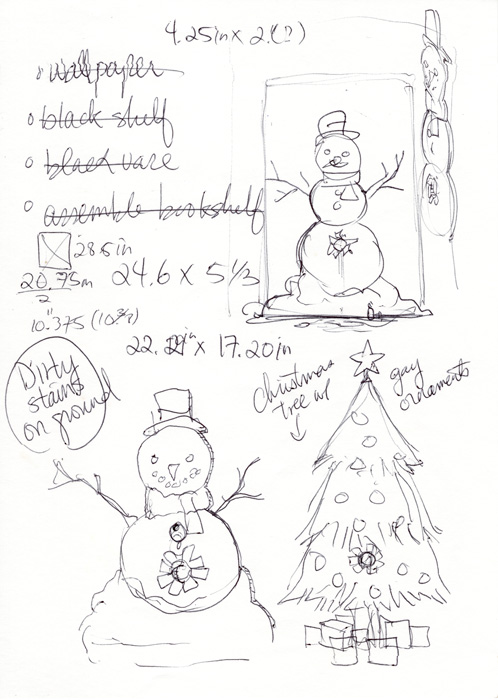 4.25in x 2.(?)
wallpaper
black shelf
black vase
assemble bookshelf
28.5in
20.75in
2
24.6 x 5 1/3
10."375 (10 3/8)
x 17.20in
Dirty
stains
on ground
christmas
tree w/
gay
ornaments